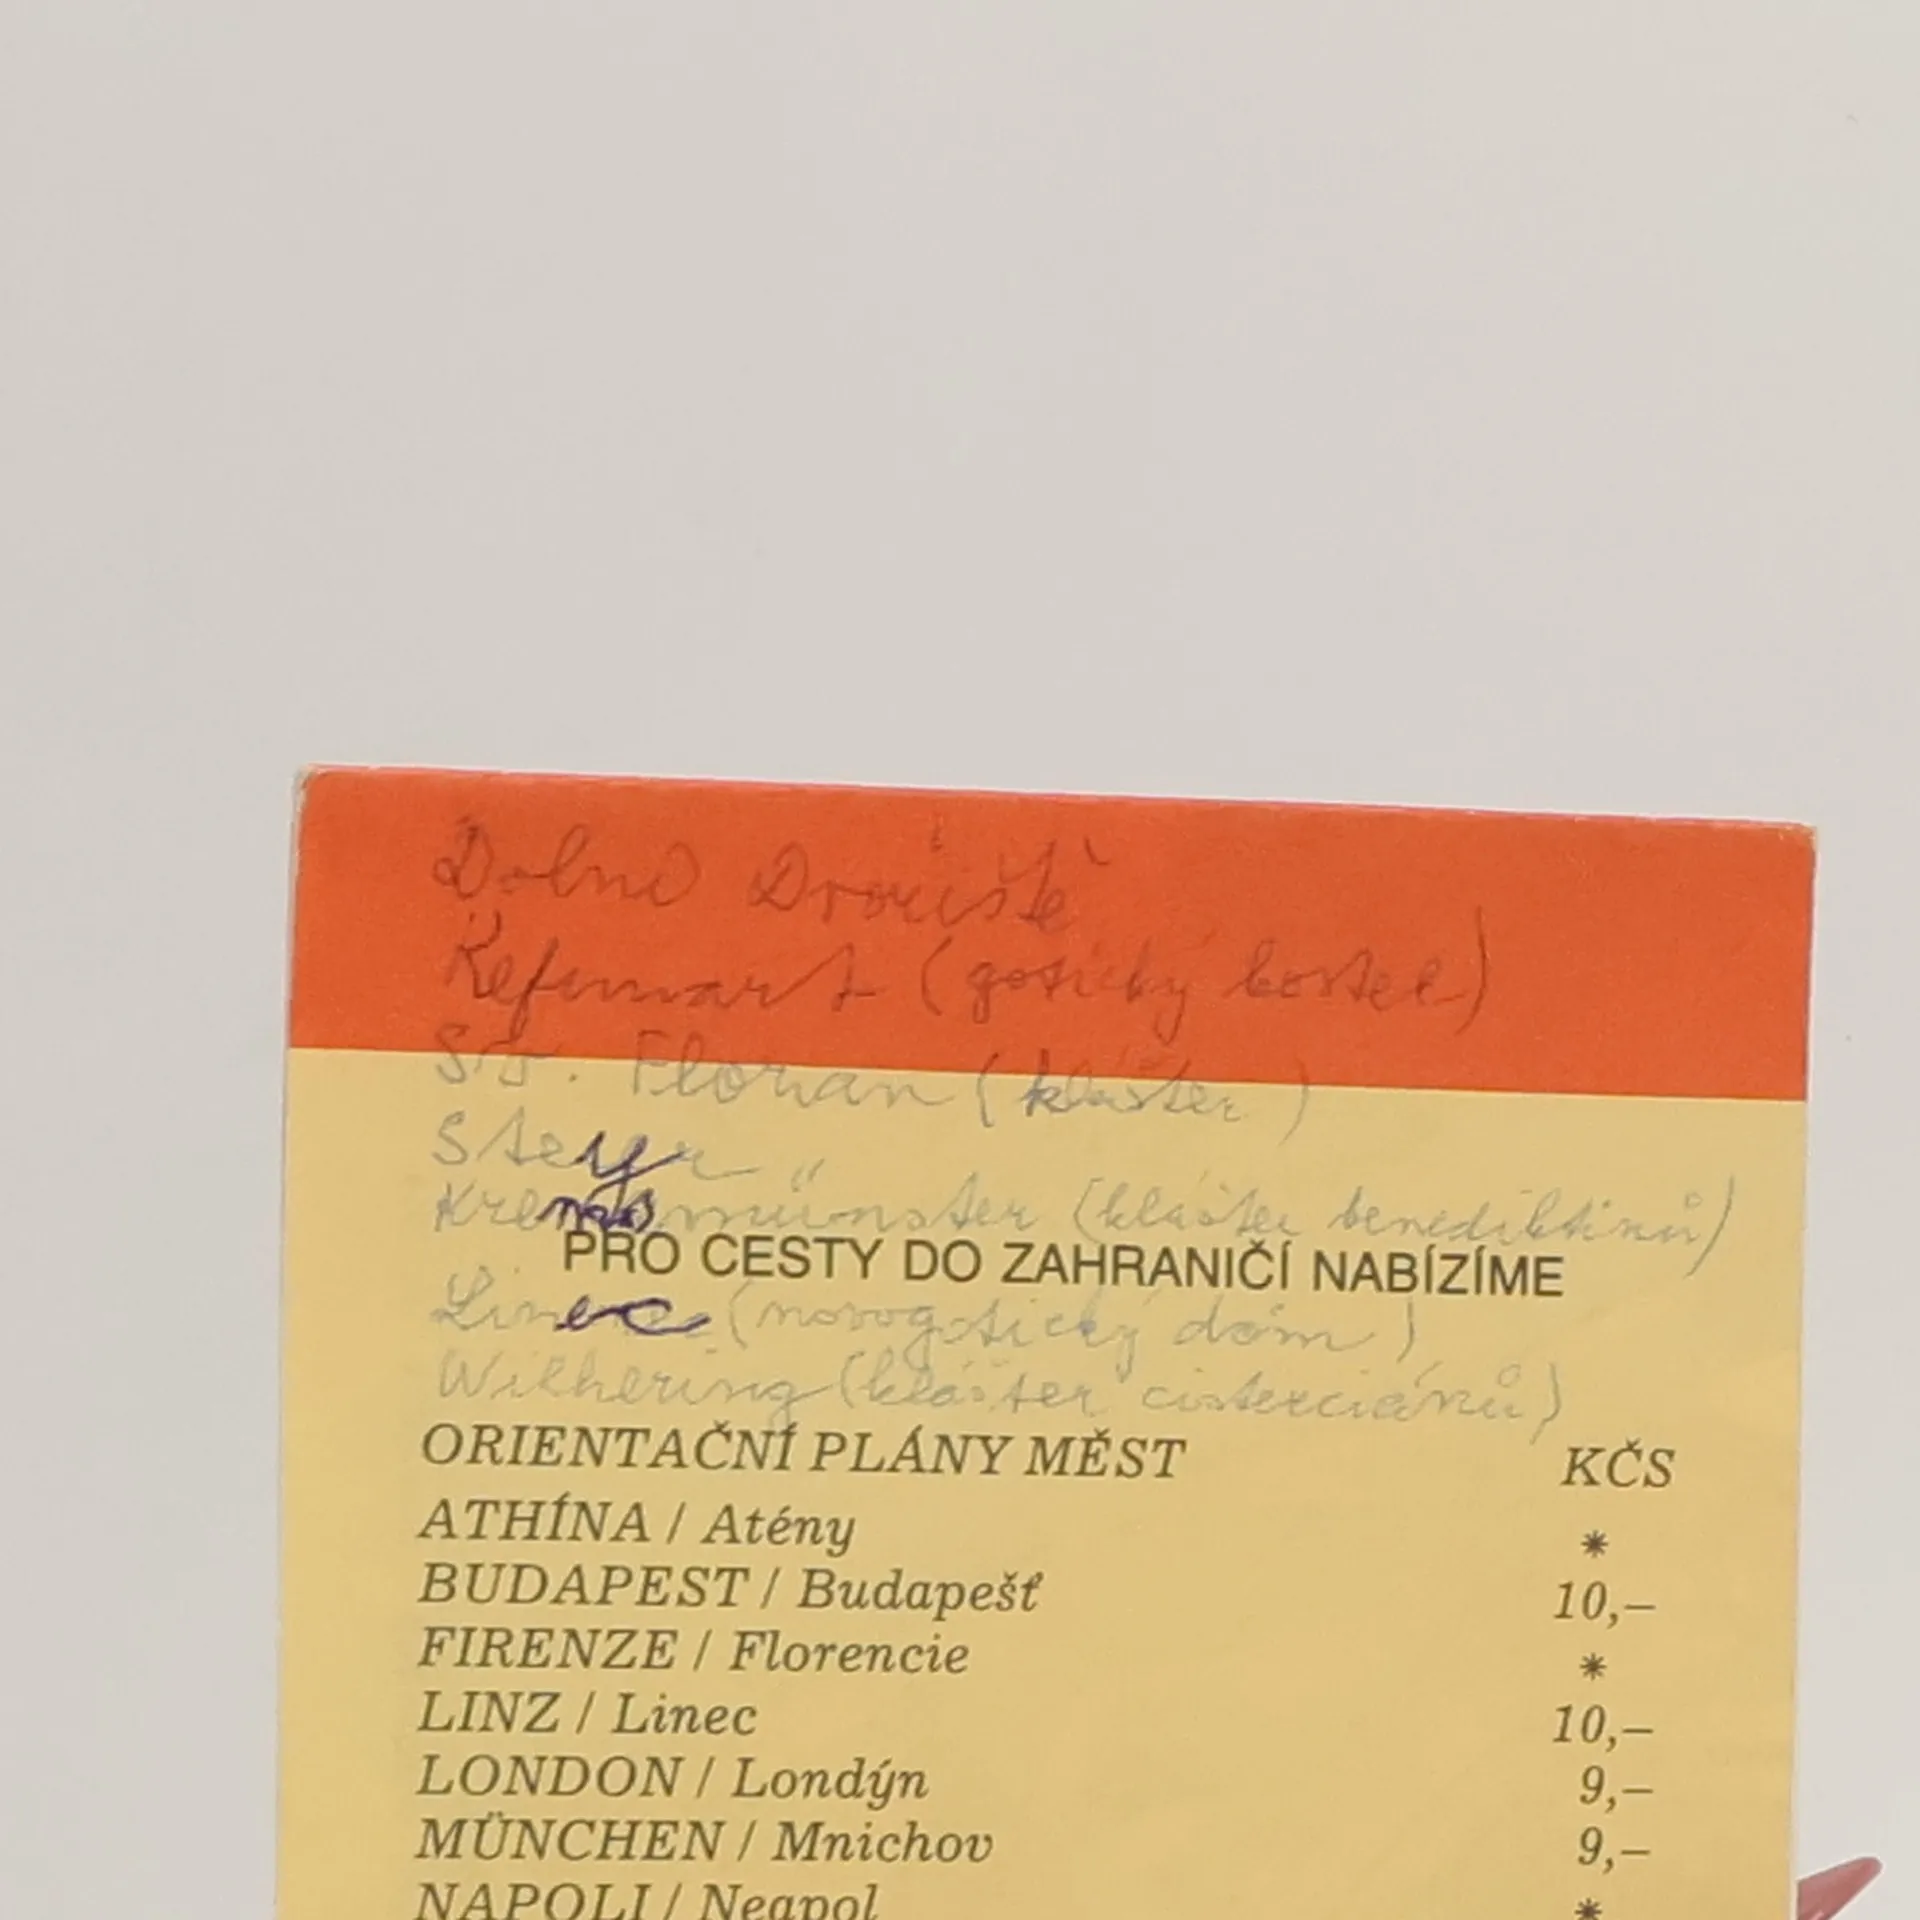 Dolní Dvořiště
Kefermarkt (gotický kostel)
St. Florian (klášter)
Steyr
Kremsmünster (klášter benediktinů)
PRO CESTY DO ZAHRANIČÍ NABÍZÍME
Linec (novogotický dóm)
Wilhering (klášter cisterciánů)
ORIENTAČNÍ PLÁNY MĚST KČS
ATHÍNA / Atény *
BUDAPEST / Budapešť 10,–
FIRENZE / Florencie *
LINZ / Linec 10,–
LONDON / Londýn 9,–
MÜNCHEN / Mnichov 9,–
NAPOLI / Neapol *